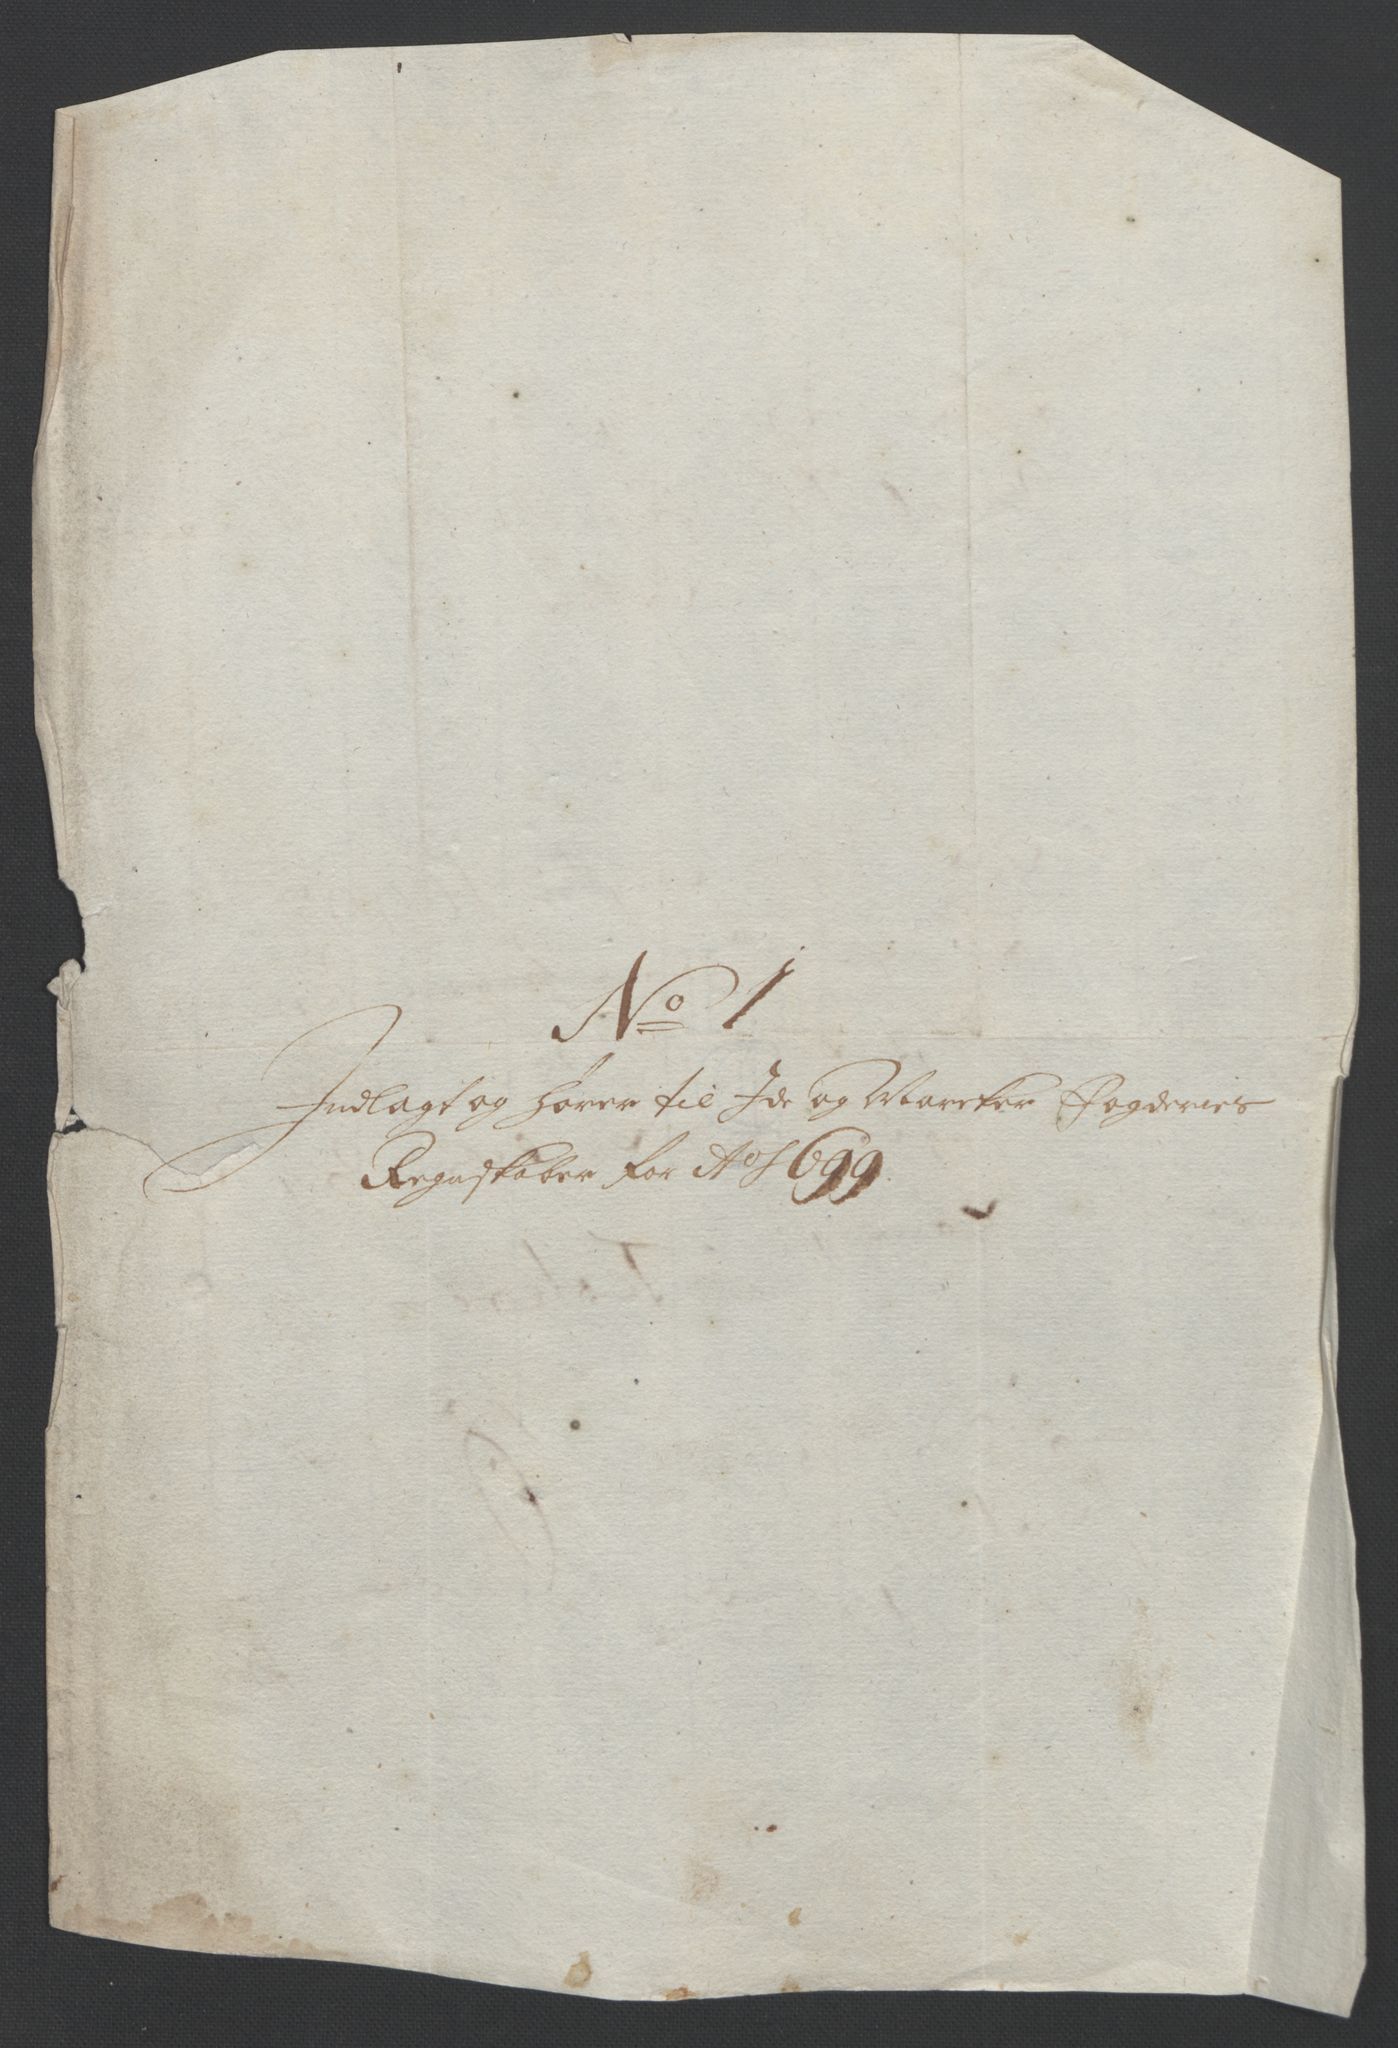 No 1
Indlagt og hører til Ide og Marcker Fogderies
Regnskaber for Ao 1699